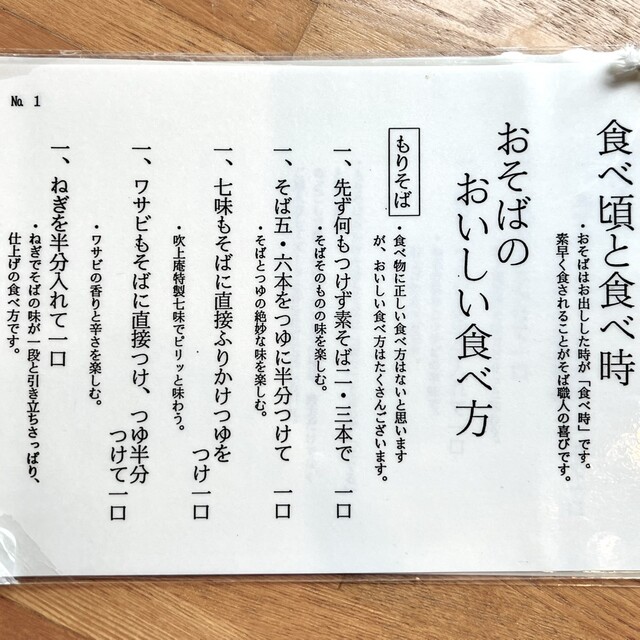 食べ頃と食べ時
・おそばはお出しした時が「食べ時」です。
素早く食されることがそば職人の喜びです。
おそばの
おいしい食べ方
もりそば
・食べ物に正しい食べ方はないと思います
が、おいしい食べ方はたくさんございます。
一、先ず何もつけず素そば二・三本で 一口
・そばそのものの味を楽しむ。
一、そば五・六本をつゆに半分つけて 一口
・そばとつゆの絶妙な味を楽しむ。
一、七味もそばに直接ふりかけつゆを
つけ一口
・吹上庵特製七味でピリッと味わう。
一、ワサビもそばに直接つけ、つゆ半分
つけて一口
・ワサビの香りと辛さを楽しむ。
一、ねぎを半分入れて一口
・ねぎでそばの味が一段と引き立ちさっぱり、
仕上げの食べ方です。
№ 1